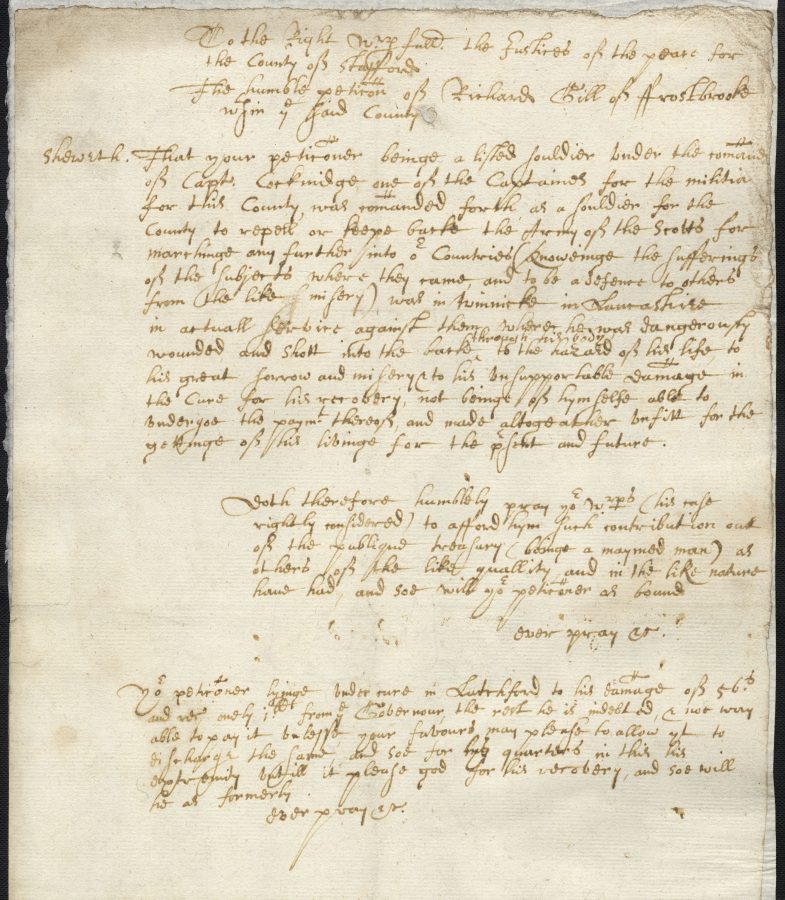 To the Right Wrpfull. the Justices of the peace for
the County of Stafford
The humble peticon of Richard Gill of ffrostbrooke
wthin ye said County
Sheweth. That your peticoner beinge a listed souldier under the comand
of Capt. Cocknidge one of the Captaines for the militia
for this County, was comanded forth as a souldier for the
County to repell or keepe backe the Army of the Scotts for
marchinge any further into or Countries (knoweinge the sufferings
of the subjects where they came, and to be a defence to others
from the like misery) was in in Lancashire
in actuall service against them where he was dangerously
wounded and shott into the backe through his body to the hazard of his life to
his great sorrow and misery & to his unsupportable damage in
the Cure for his recovery, not beinge of hymselfe able to
undergoe the paymt thereof, and made altogeather unfitt for the
gettinge of his livinge for the psent and future.
Doth therefore humbly pray yor Wrps (his case
rightly considered) to afford hym such contribution out
of the publique treasury (beinge a maymed man) as
others of the like quallity and in the like nature
have had, and soe will yor peticoner as bound
ever pray &c.
Yor peticoner lyinge under cure in Latchford to his damage of 56s
and onely from ye Governour, the rest he is indebted, & noe way
able to pay it unlesse your favours may please to allow yt to
discharge the same, and soe for quarters in this his
extremity untill it please god for his recovery, and soe will
he as formerly
ever pray &c.